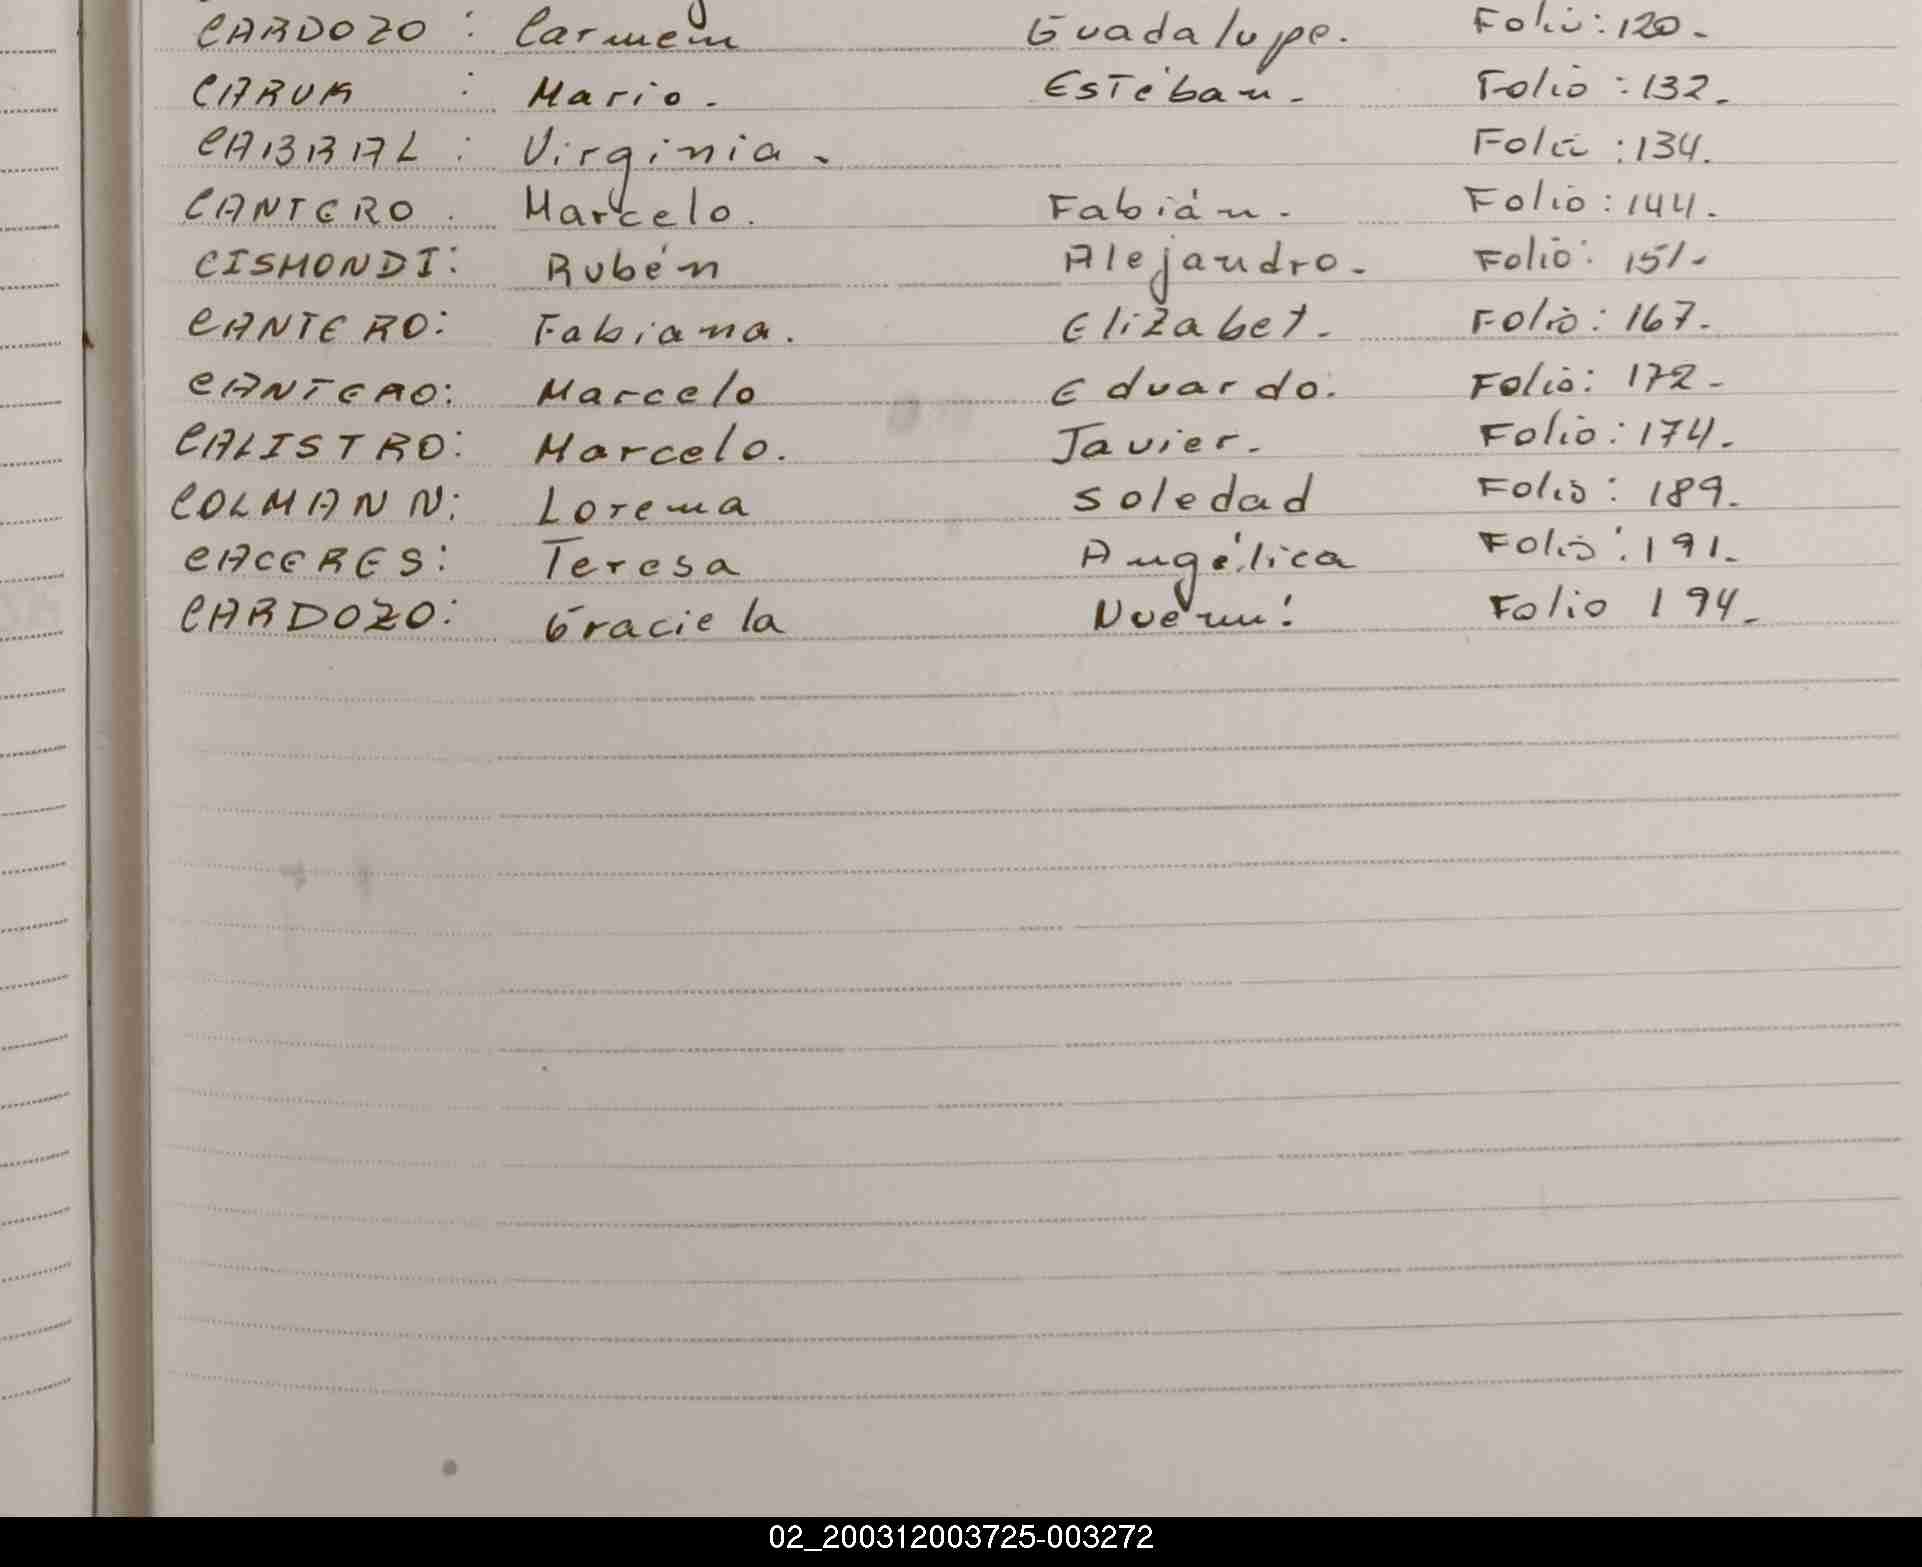 CARDOZO : Carmem Guadalupe. Folio: 120.-
CARUK : Mario.- Estéban.- Folio : 132.-
CABRAL : Virginia.- Folio : 134.
CANTERO . Marcelo. Fabián.- Folio : 144.
CISMONDI: Rubén Alejandro.- Folio: 151.-
CANTERO: Fabiana. Elizabet.- Folio: 167.-
CANTERO: Marcelo Eduardo. Folio: 172.-
CALISTRO: Marcelo. Javier.- Folio: 174.-
COLMANN: Lorena Soledad Folio: 189.-
CACERES: Teresa Angélica Folio: 191.-
CARDOZO: Graciela Folio 194.-
02_200312003725-003272